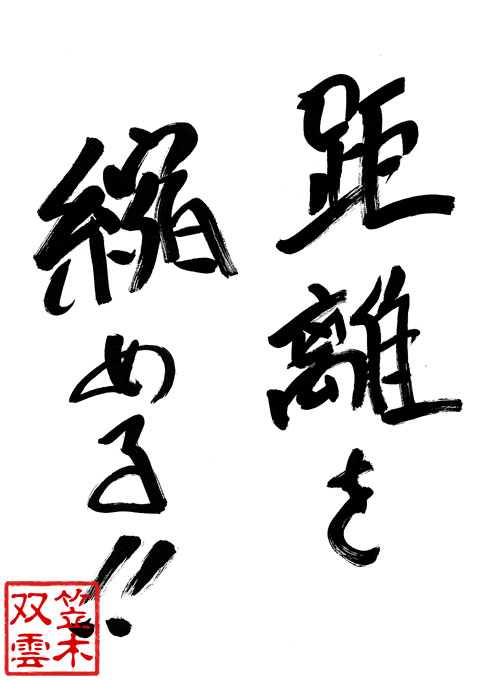 距離を
縮める!!
笠木
双雲